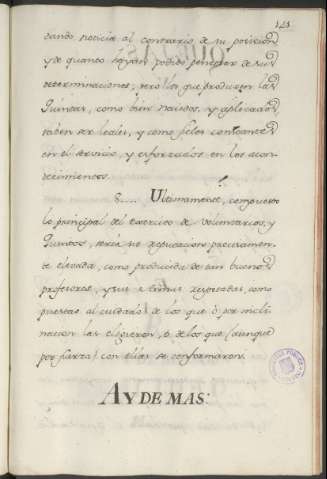 121
dando noticia al contrario de su posicion
y de quanto hayan podido penetrar de sus
determinaciones, pero los que producen las
Quintas, como bien nacidos, y aplicados
saben ser leales, y como fieles constantes
en el servicio, y esforzados en los acon-
tecimientos.
8.... Ultimamente, compuesto
lo principal del exercito de voluntarios, y
Quintos, sería su reputacion precisamen-
te elevada, como producido de tan buenos
profesores, y sus armas respetadas, como
puestas al cuidado de los que ó por incli-
nacion las eligieron, ó de los que (aunque
por fuerza) con ellas se conformaron.
AY DE MAS: